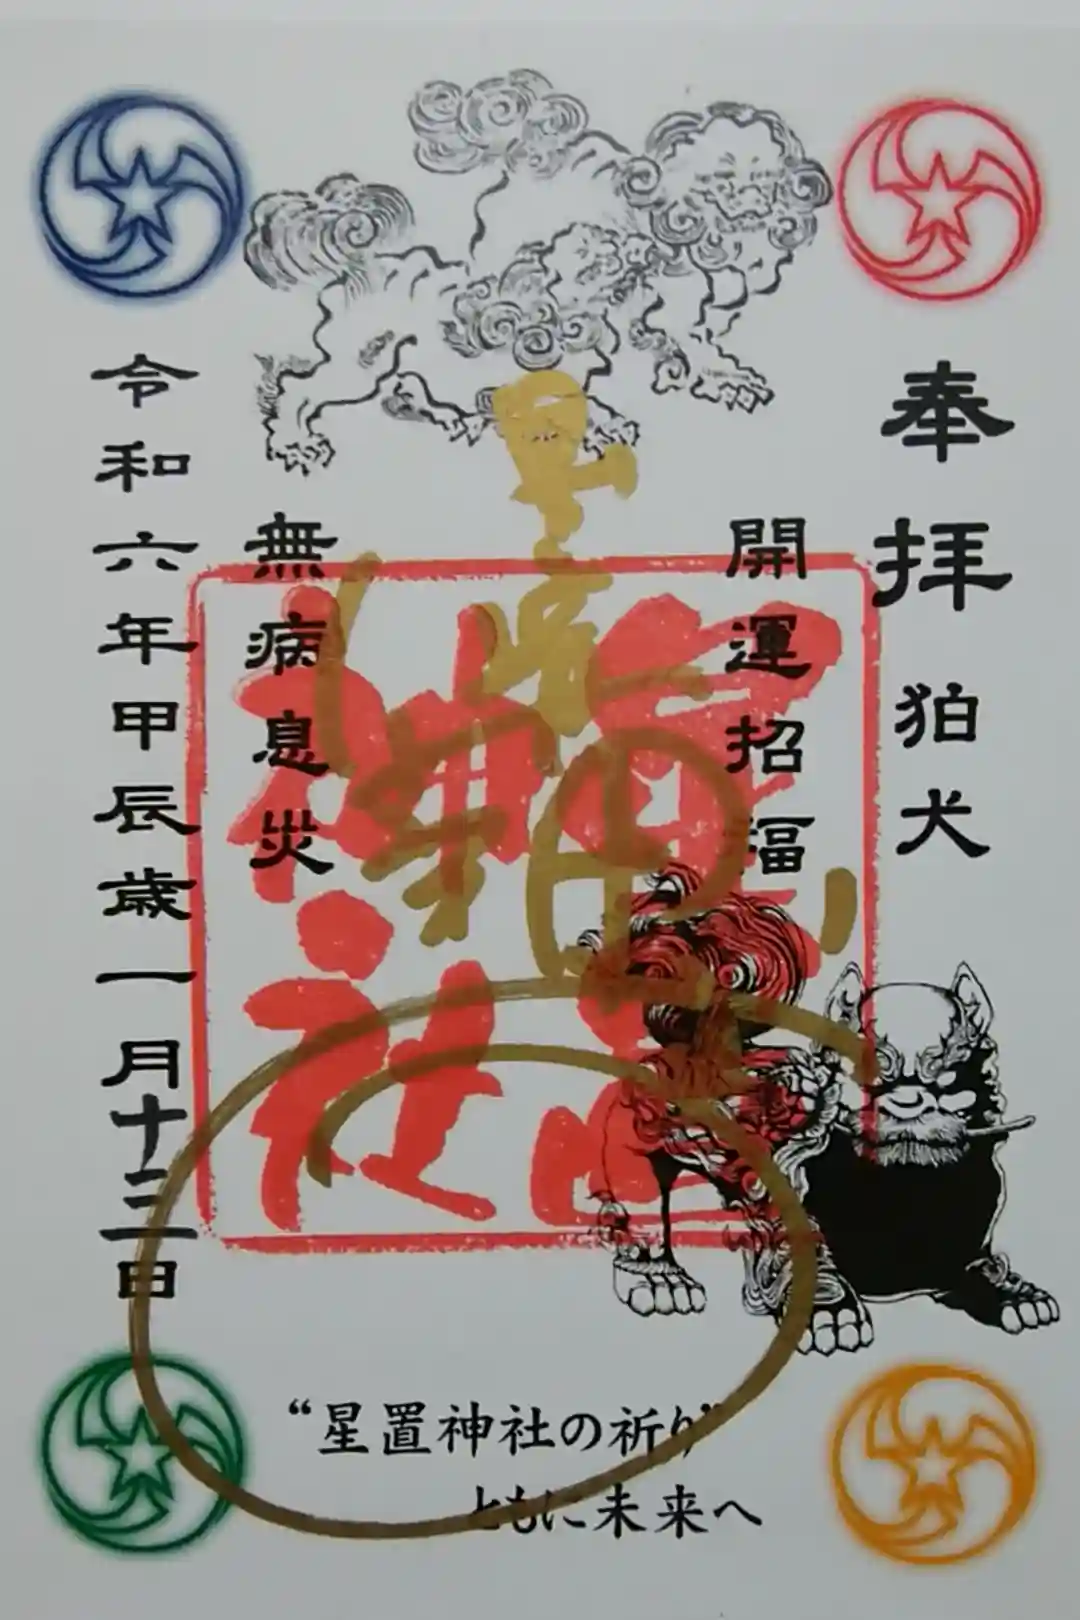 奉拝 狛犬
開運招福
星置神社
無病息災
令和六年甲辰歳一月十三日
星置神社
“星置神社の祈り”
ともに未来へ